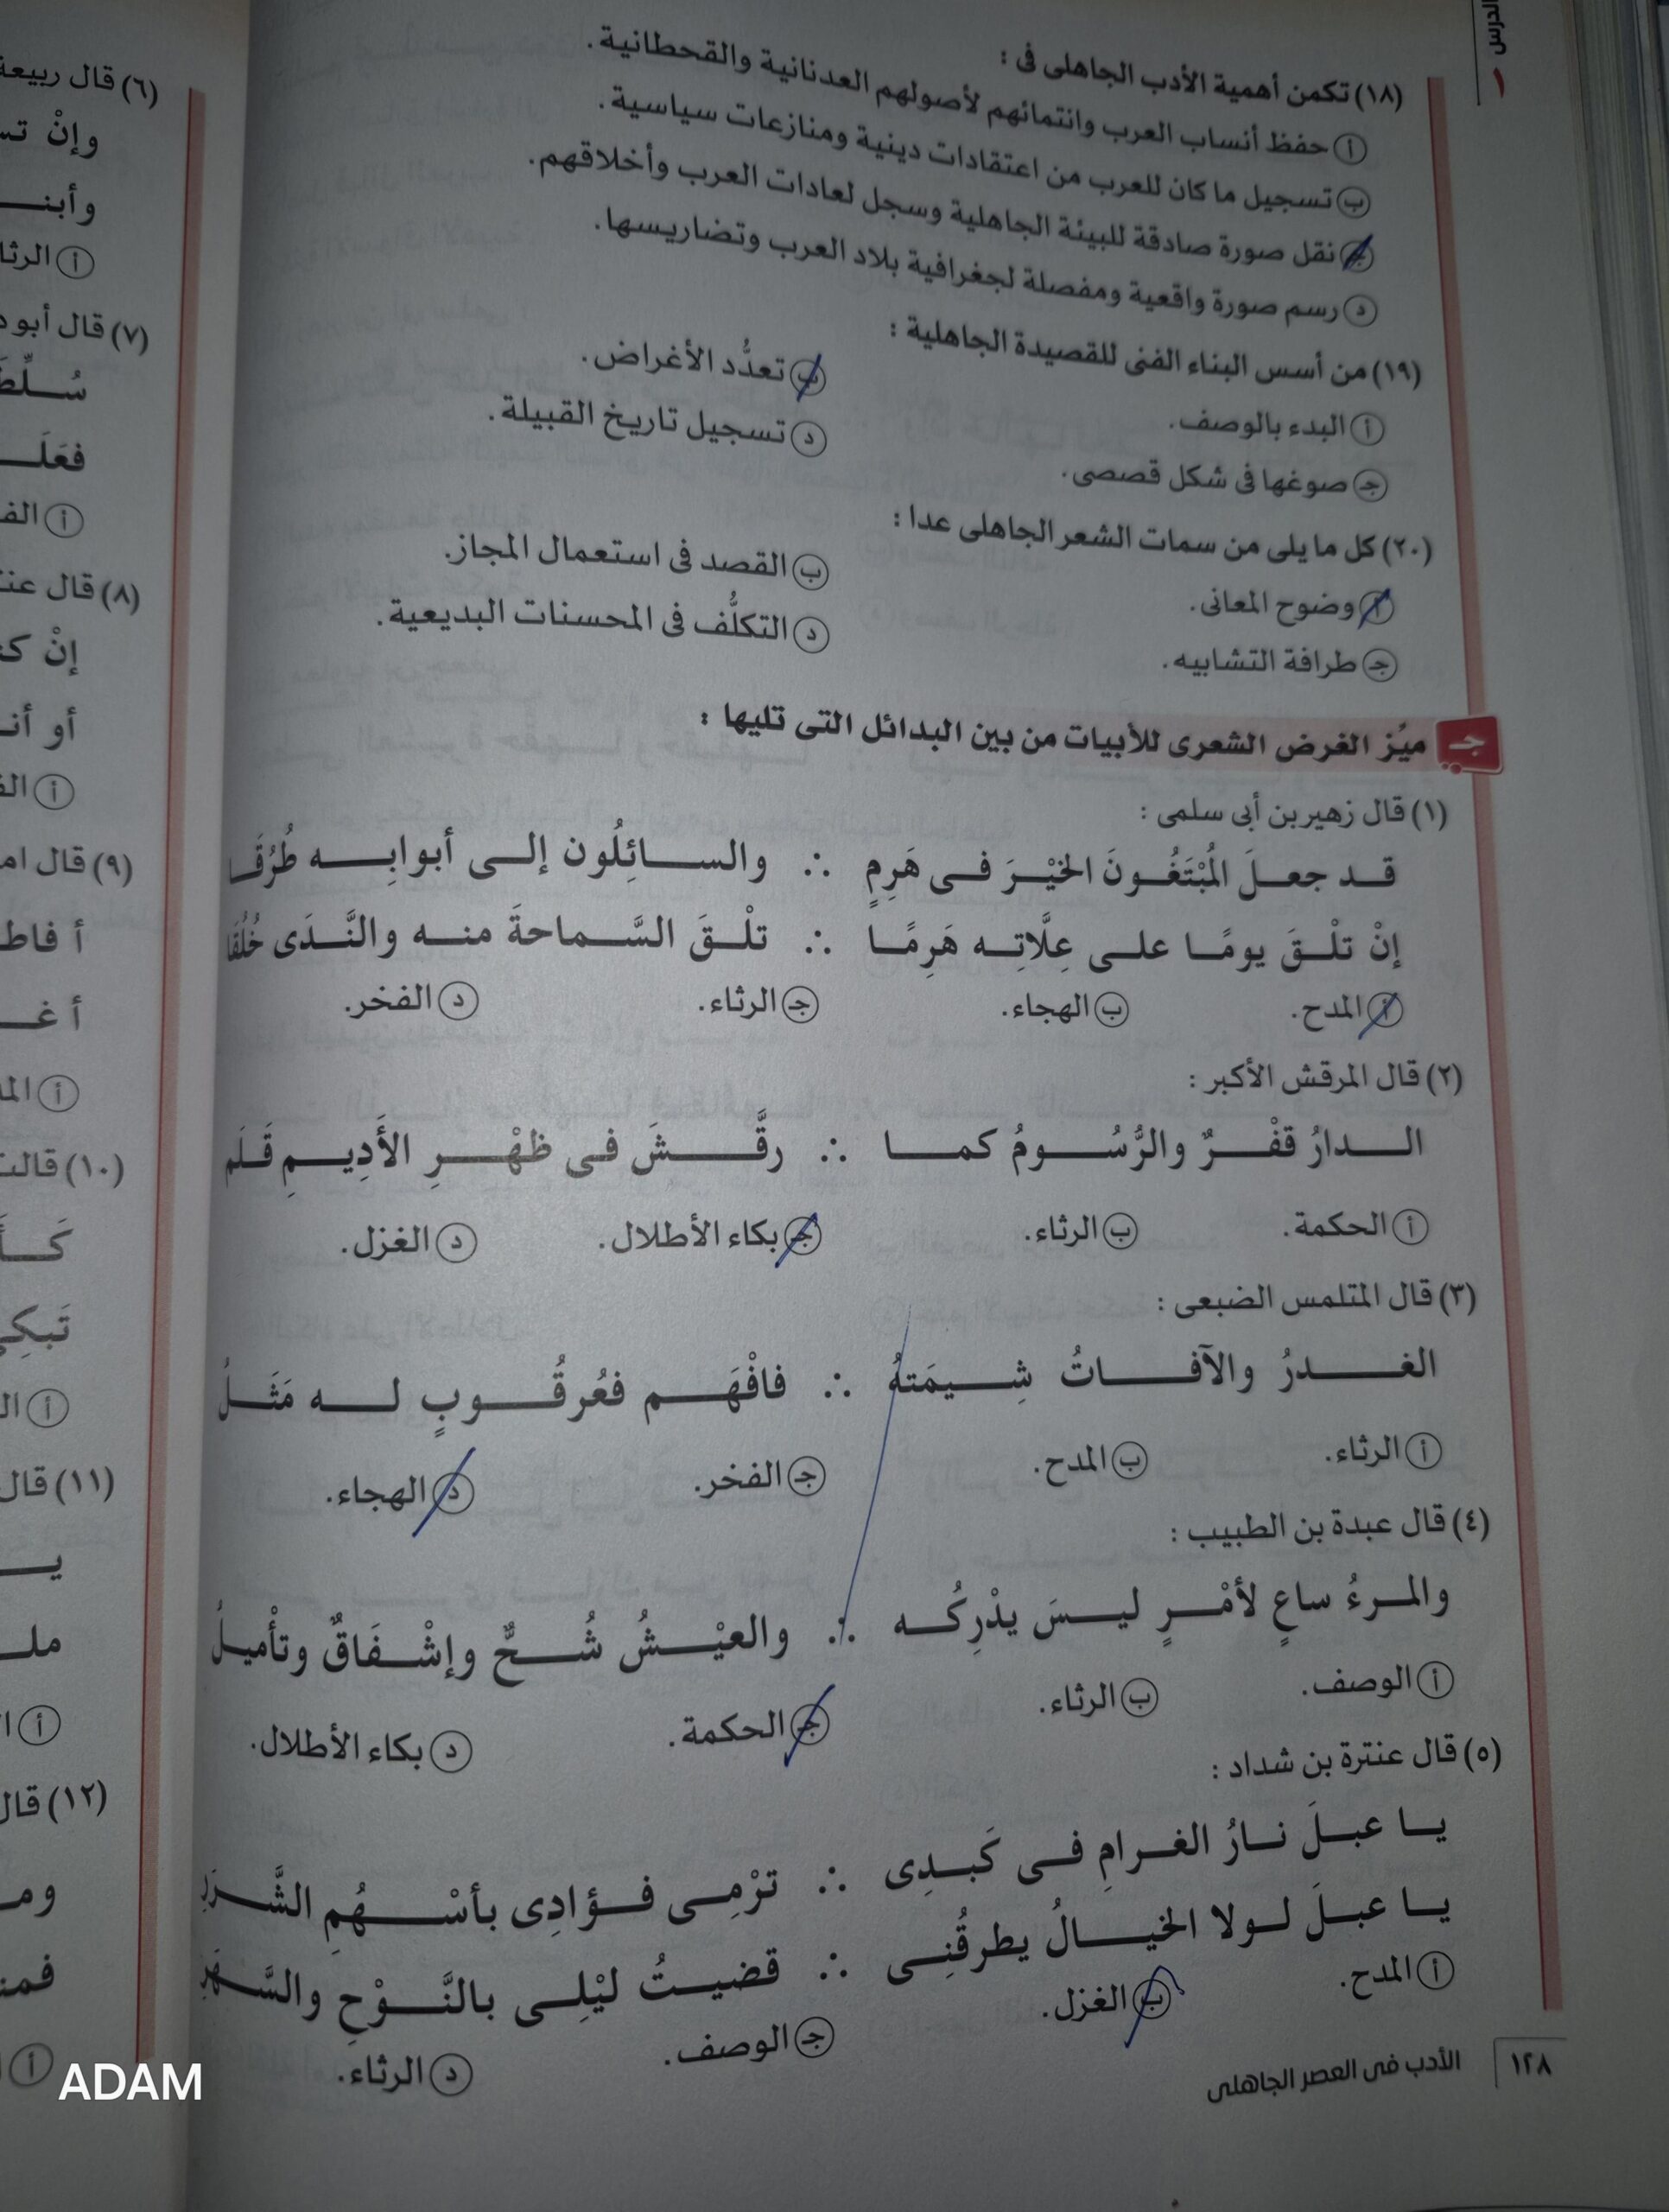 الدرس
(١٨) تكمن أهمية الأدب الجاهلى فى :
أ حفظ أنساب العرب وانتمائهم لأصولهم العدنانية والقحطانية.
ب تسجيل ما كان للعرب من اعتقادات دينية ومنازعات سياسية.
جـ نقل صورة صادقة للبيئة الجاهلية وسجل لعادات العرب وأخلاقهم.
د رسم صورة واقعية ومفصلة لجغرافية بلاد العرب وتضاريسها.
(١٩) من أسس البناء الفنى للقصيدة الجاهلية :
أ البدء بالوصف. ب تعدُّد الأغراض.
جـ صوغها فى شكل قصصى. د تسجيل تاريخ القبيلة.
(٢٠) كل ما يلى من سمات الشعر الجاهلى عدا :
أ وضوح المعانى. ب القصد فى استعمال المجاز.
جـ طرافة التشابيه. د التكلُّف فى المحسنات البديعية.
جـ ميِّز الغرض الشعرى للأبيات من بين البدائل التى تليها :
(١) قال زهير بن أبى سلمى :
قد جعلَ المُبْتَغُونَ الخَيْرَ فى هَرِمٍ ∴ والسائِلُون إلى أبوابِه طُرُقَا
إنْ تلْقَ يومًا على عِلَّاتِه هَرِمًا ∴ تلْقَ السَّماحةَ منه والنَّدَى خُلُقَا
أ المدح. ب الهجاء. جـ الرثاء. د الفخر.
(٢) قال المرقش الأكبر :
الدارُ قفْرٌ والرُّسُومُ كما ∴ رقَّشَ فى ظهْرِ الأَدِيمِ قَلَم
أ الحكمة. ب الرثاء. جـ بكاء الأطلال. د الغزل.
(٣) قال المتلمس الضبعى :
الغدرُ والآفاتُ شِيمَتهُ ∴ فافْهَم فعُرقُوبٍ له مَثَلُ
أ الرثاء. ب المدح. جـ الفخر. د الهجاء.
(٤) قال عبدة بن الطبيب :
والمرءُ ساعٍ لأمْرٍ ليسَ يدْرِكُه ∴ والعيْشُ شُحٌّ وإشْفَاقٌ وتأْميلُ
أ الوصف. ب الرثاء. جـ الحكمة. د بكاء الأطلال.
(٥) قال عنترة بن شداد :
يا عبلَ نارُ الغرامِ فى كَبدِى ∴ ترْمِى فؤادِى بأسْهُمِ الشَّرَرِ
يا عبلَ لولا الخيالُ يطرقُنِى ∴ قضيتُ ليْلِى بالنَّوْحِ والسَّهَرِ
أ المدح. ب الغزل. جـ الوصف. د الرثاء.
١٢٨ الأدب فى العصر الجاهلى
(٦) قال ربيعة
وإنْ
أ الرثا
(٧) قال أبو
أ
(٨) قال
إنْ
أو
أ
(٩) قال
أ
أ
أ
(١٠)
أ
(١١) قال
أ
(١٢) قال
أ
ADAM